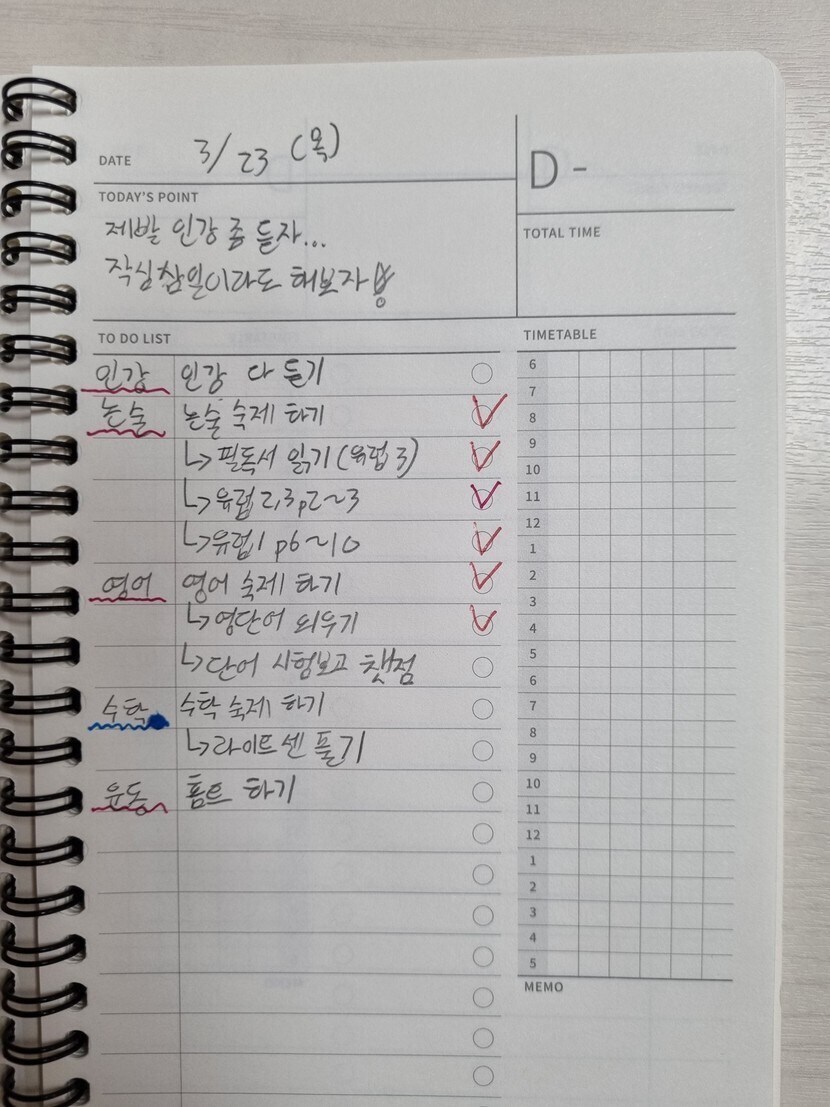 DATE 3/23 (목)
D-
TODAY'S POINT
제발 인강 좀 듣자...
작심삼일이라도 해보자
TOTAL TIME
TO DO LIST
인강 인강 다 듣기
논술 논술 숙제 하기
↳ 필독서 읽기 (유럽 3)
↳ 유럽 2,3 p2~3
↳ 유럽 1 p6~10
영어 영어 숙제 하기
↳ 영단어 외우기
↳ 단어 시험보고 챗점
수학 수학 숙제 하기
↳ 라이트쎈 풀기
운동 홈트 하기
TIMETABLE
6
7
8
9
10
11
12
1
2
3
4
5
6
7
8
9
10
11
12
1
2
3
4
5
MEMO